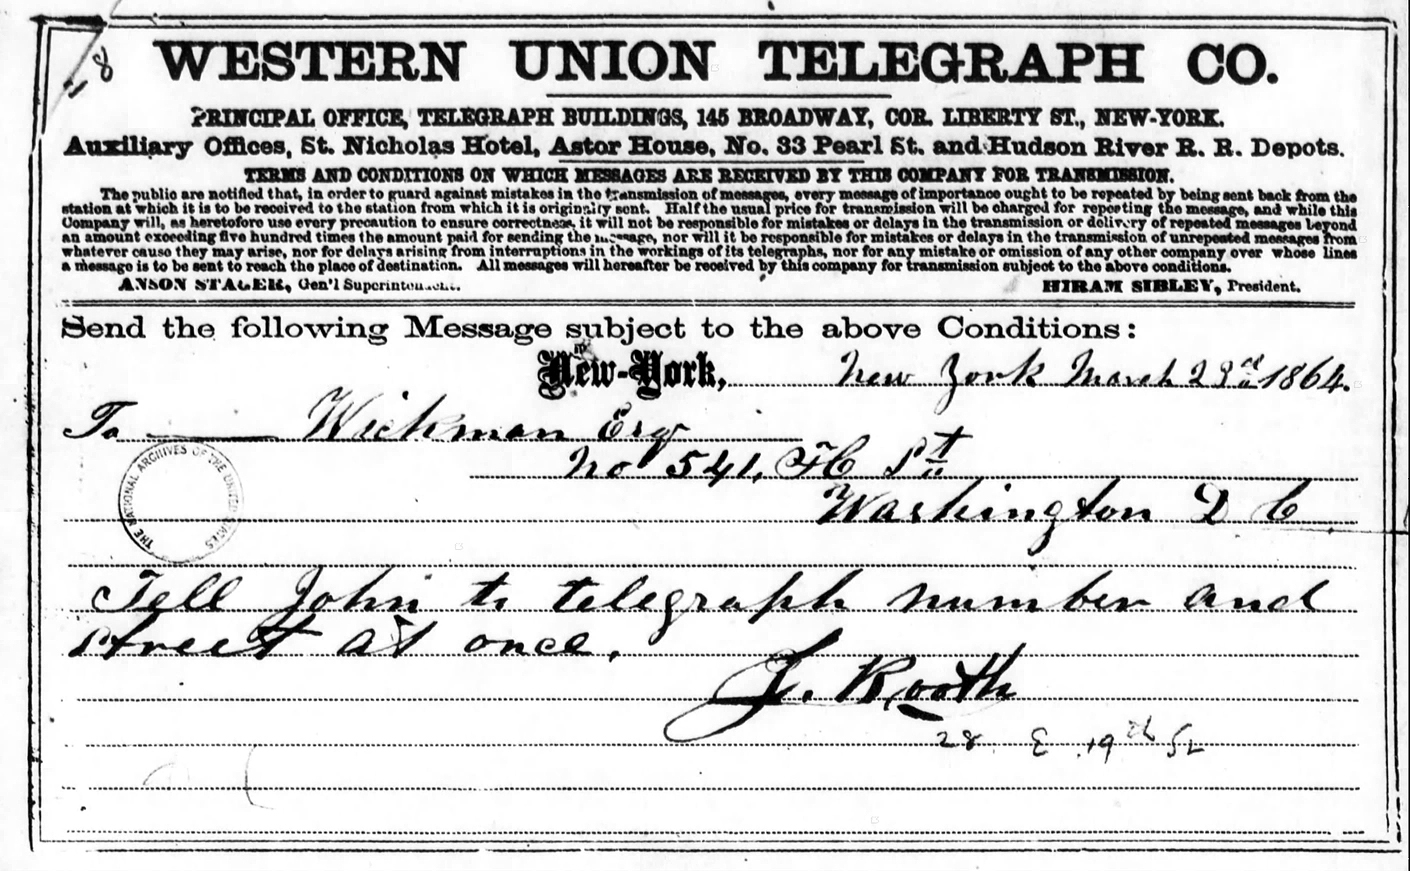 18
WESTERN UNION TELEGRAPH CO.
PRINCIPAL OFFICE, TELEGRAPH BUILDINGS, 145 BROADWAY, COR. LIBERTY ST., NEW-YORK.
Auxiliary Offices, St. Nicholas Hotel, Astor House, No. 33 Pearl St. and Hudson River R. R. Depots.
TERMS AND CONDITIONS ON WHICH MESSAGES ARE RECEIVED BY THIS COMPANY FOR TRANSMISSION.
The public are notified that, in order to guard against mistakes in the transmission of messages, every message of importance ought to be repeated by being sent back from the
station at which it is to be received to the station from which it is originally sent. Half the usual price for transmission will be charged for repeating the message, and while this
Company will, as heretofore use every precaution to ensure correctness, it will not be responsible for mistakes or delays in the transmission or delivery of repeated messages beyond
an amount exceeding five hundred times the amount paid for sending the message, nor will it be responsible for mistakes or delays in the transmission of unrepeated messages from
whatever cause they may arise, nor for delays arising from interruptions in the workings of its telegraphs, nor for any mistake or omission of any other company over whose lines
a message is to be sent to reach the place of destination. All messages will hereafter be received by this company for transmission subject to the above conditions.
ANSON STAGER, Gen'l Superintendent. HIRAM SIBLEY, President.
Send the following Message subject to the above Conditions:
New-York, New York March 23rd 1864.
To Wickman Esq
No 541, St
Washington D C
THE NATIONAL ARCHIVES OF THE UNITED STATES
Tell John to telegraph number and
street at once.
J. Booth
28 E 19th St